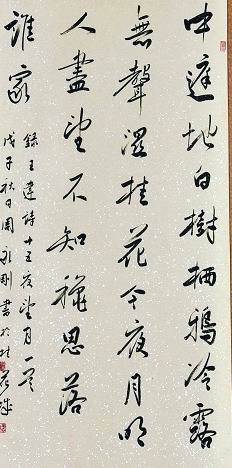 中庭地白樹栖鴉冷露
無聲濕桂花今夜月明
人盡望不知穐思落
誰家
錄王建詩十五夜望月一首
戊子秋日周永剛書於桂花城